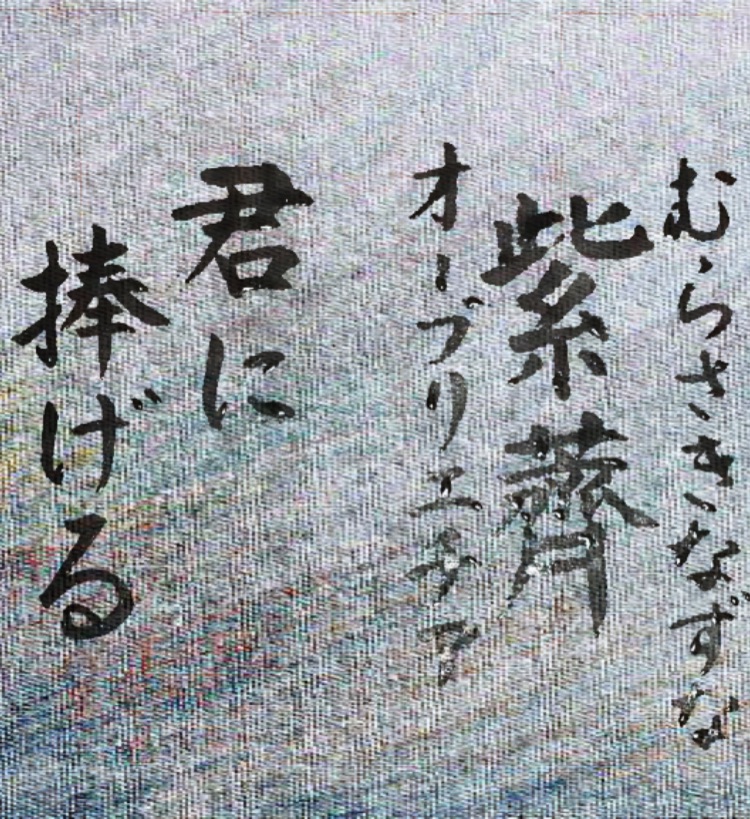 むらさきなずな
紫薺
オーブリエチア
君に
捧げる